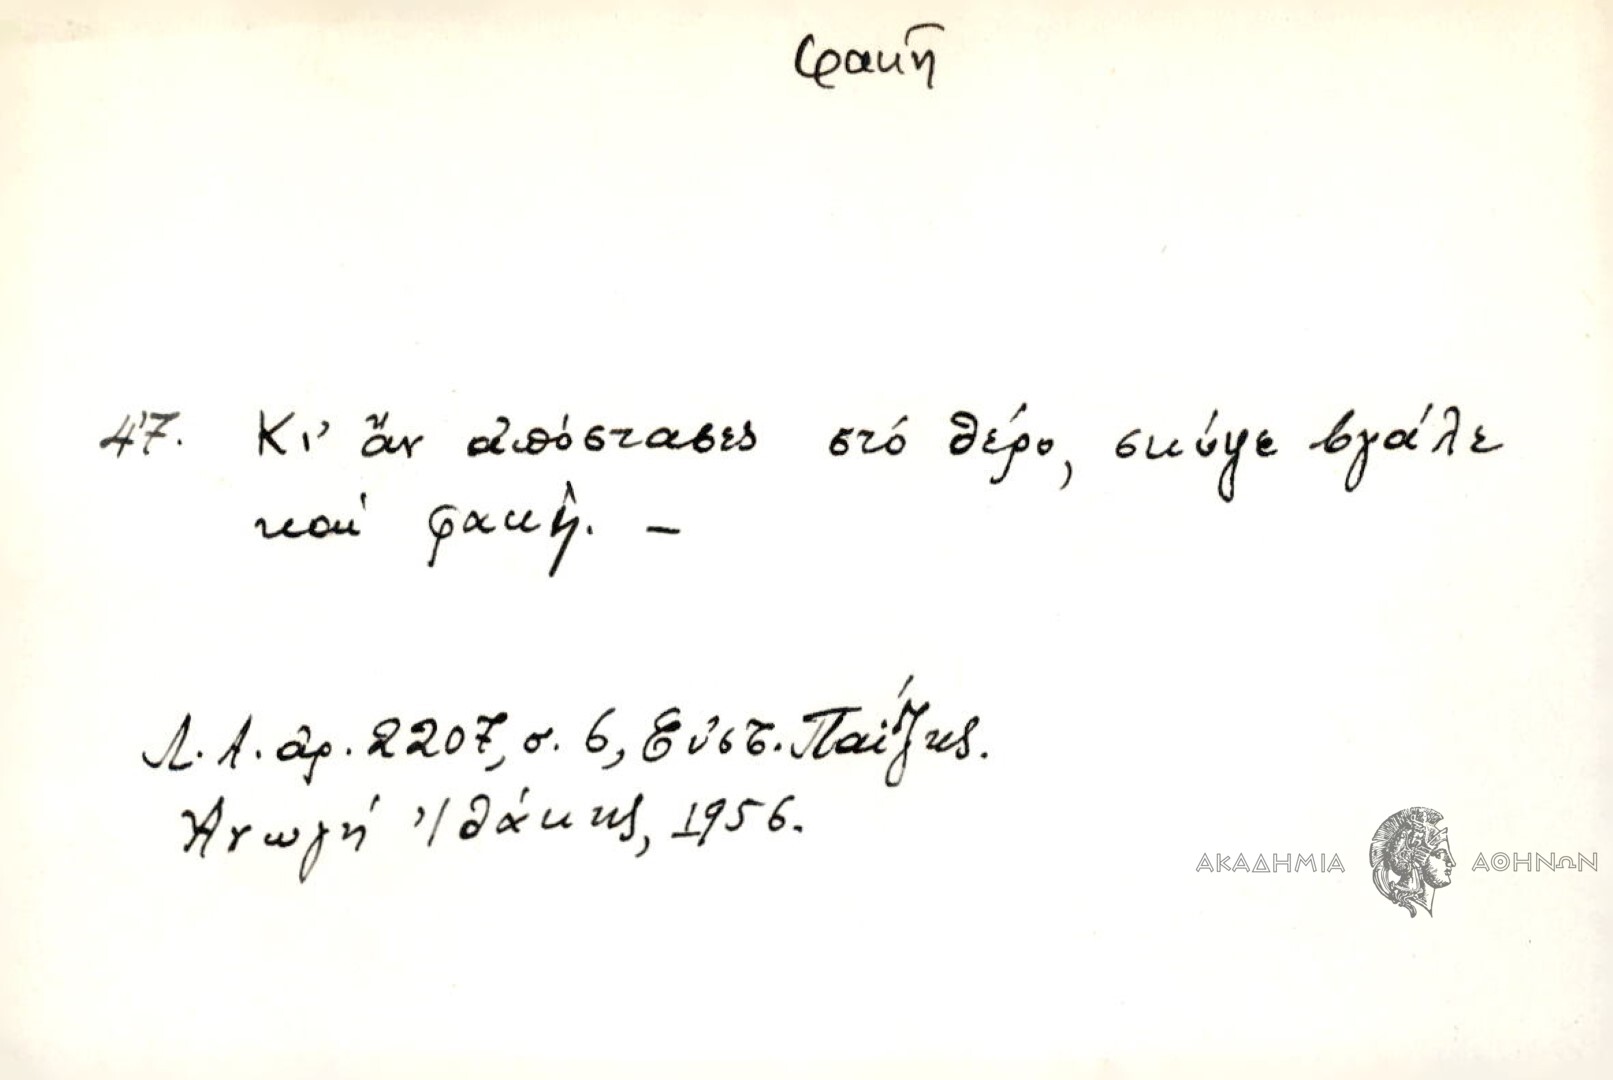 φακῆ
47. Κι' ἄν ἀπόστασες στό θέρο, σκύψε βγάλε
καί φακῆ. –
Λ. Α. ἀρ. 2207, σ. 6, Εὐστ. Παΐζης.
Ἀνωγή Ἰθάκης, 1956.
ΑΚΑΔΗΜΙΑ ΑΘΗΝΩΝ